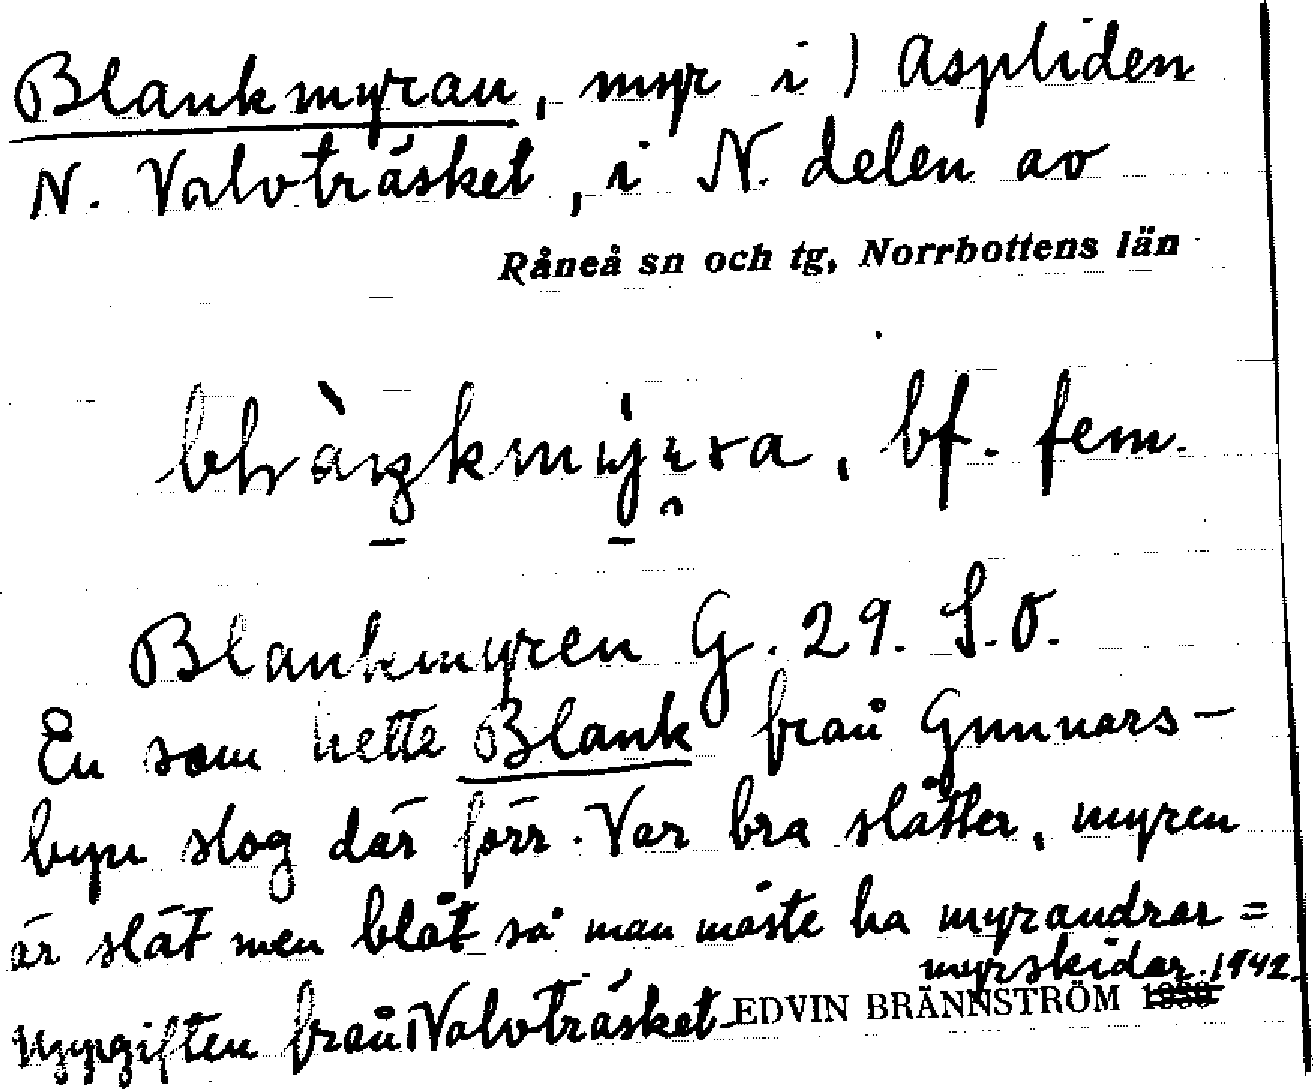 Blankmyran, myr i ) Aspliden
N. Valvträsket, i N. delen av
Råneå sn och tg, Norrbottens län
bf. fem.
Blankmyren G. 29. S.O.
En som hette Blank från Gunnars-
byn slog där förr. Var bra slåtter, myren
är slät men blöt så man måste ha myrandrar =
myrskidor. 1942
Uppgiften från N Valvträsket EDVIN BRÄNNSTRÖM 1930